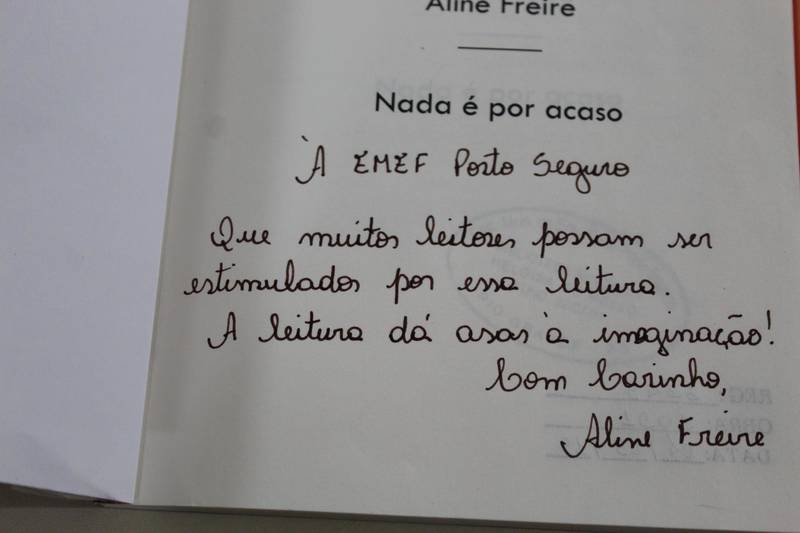 Aline Freire
Nada é por acaso
À EMEF Porto Seguro
Que muitos leitores possam ser
estimulados por essa leitura.
A leitura dá asas à imaginação!
Com Carinho,
Aline Freire